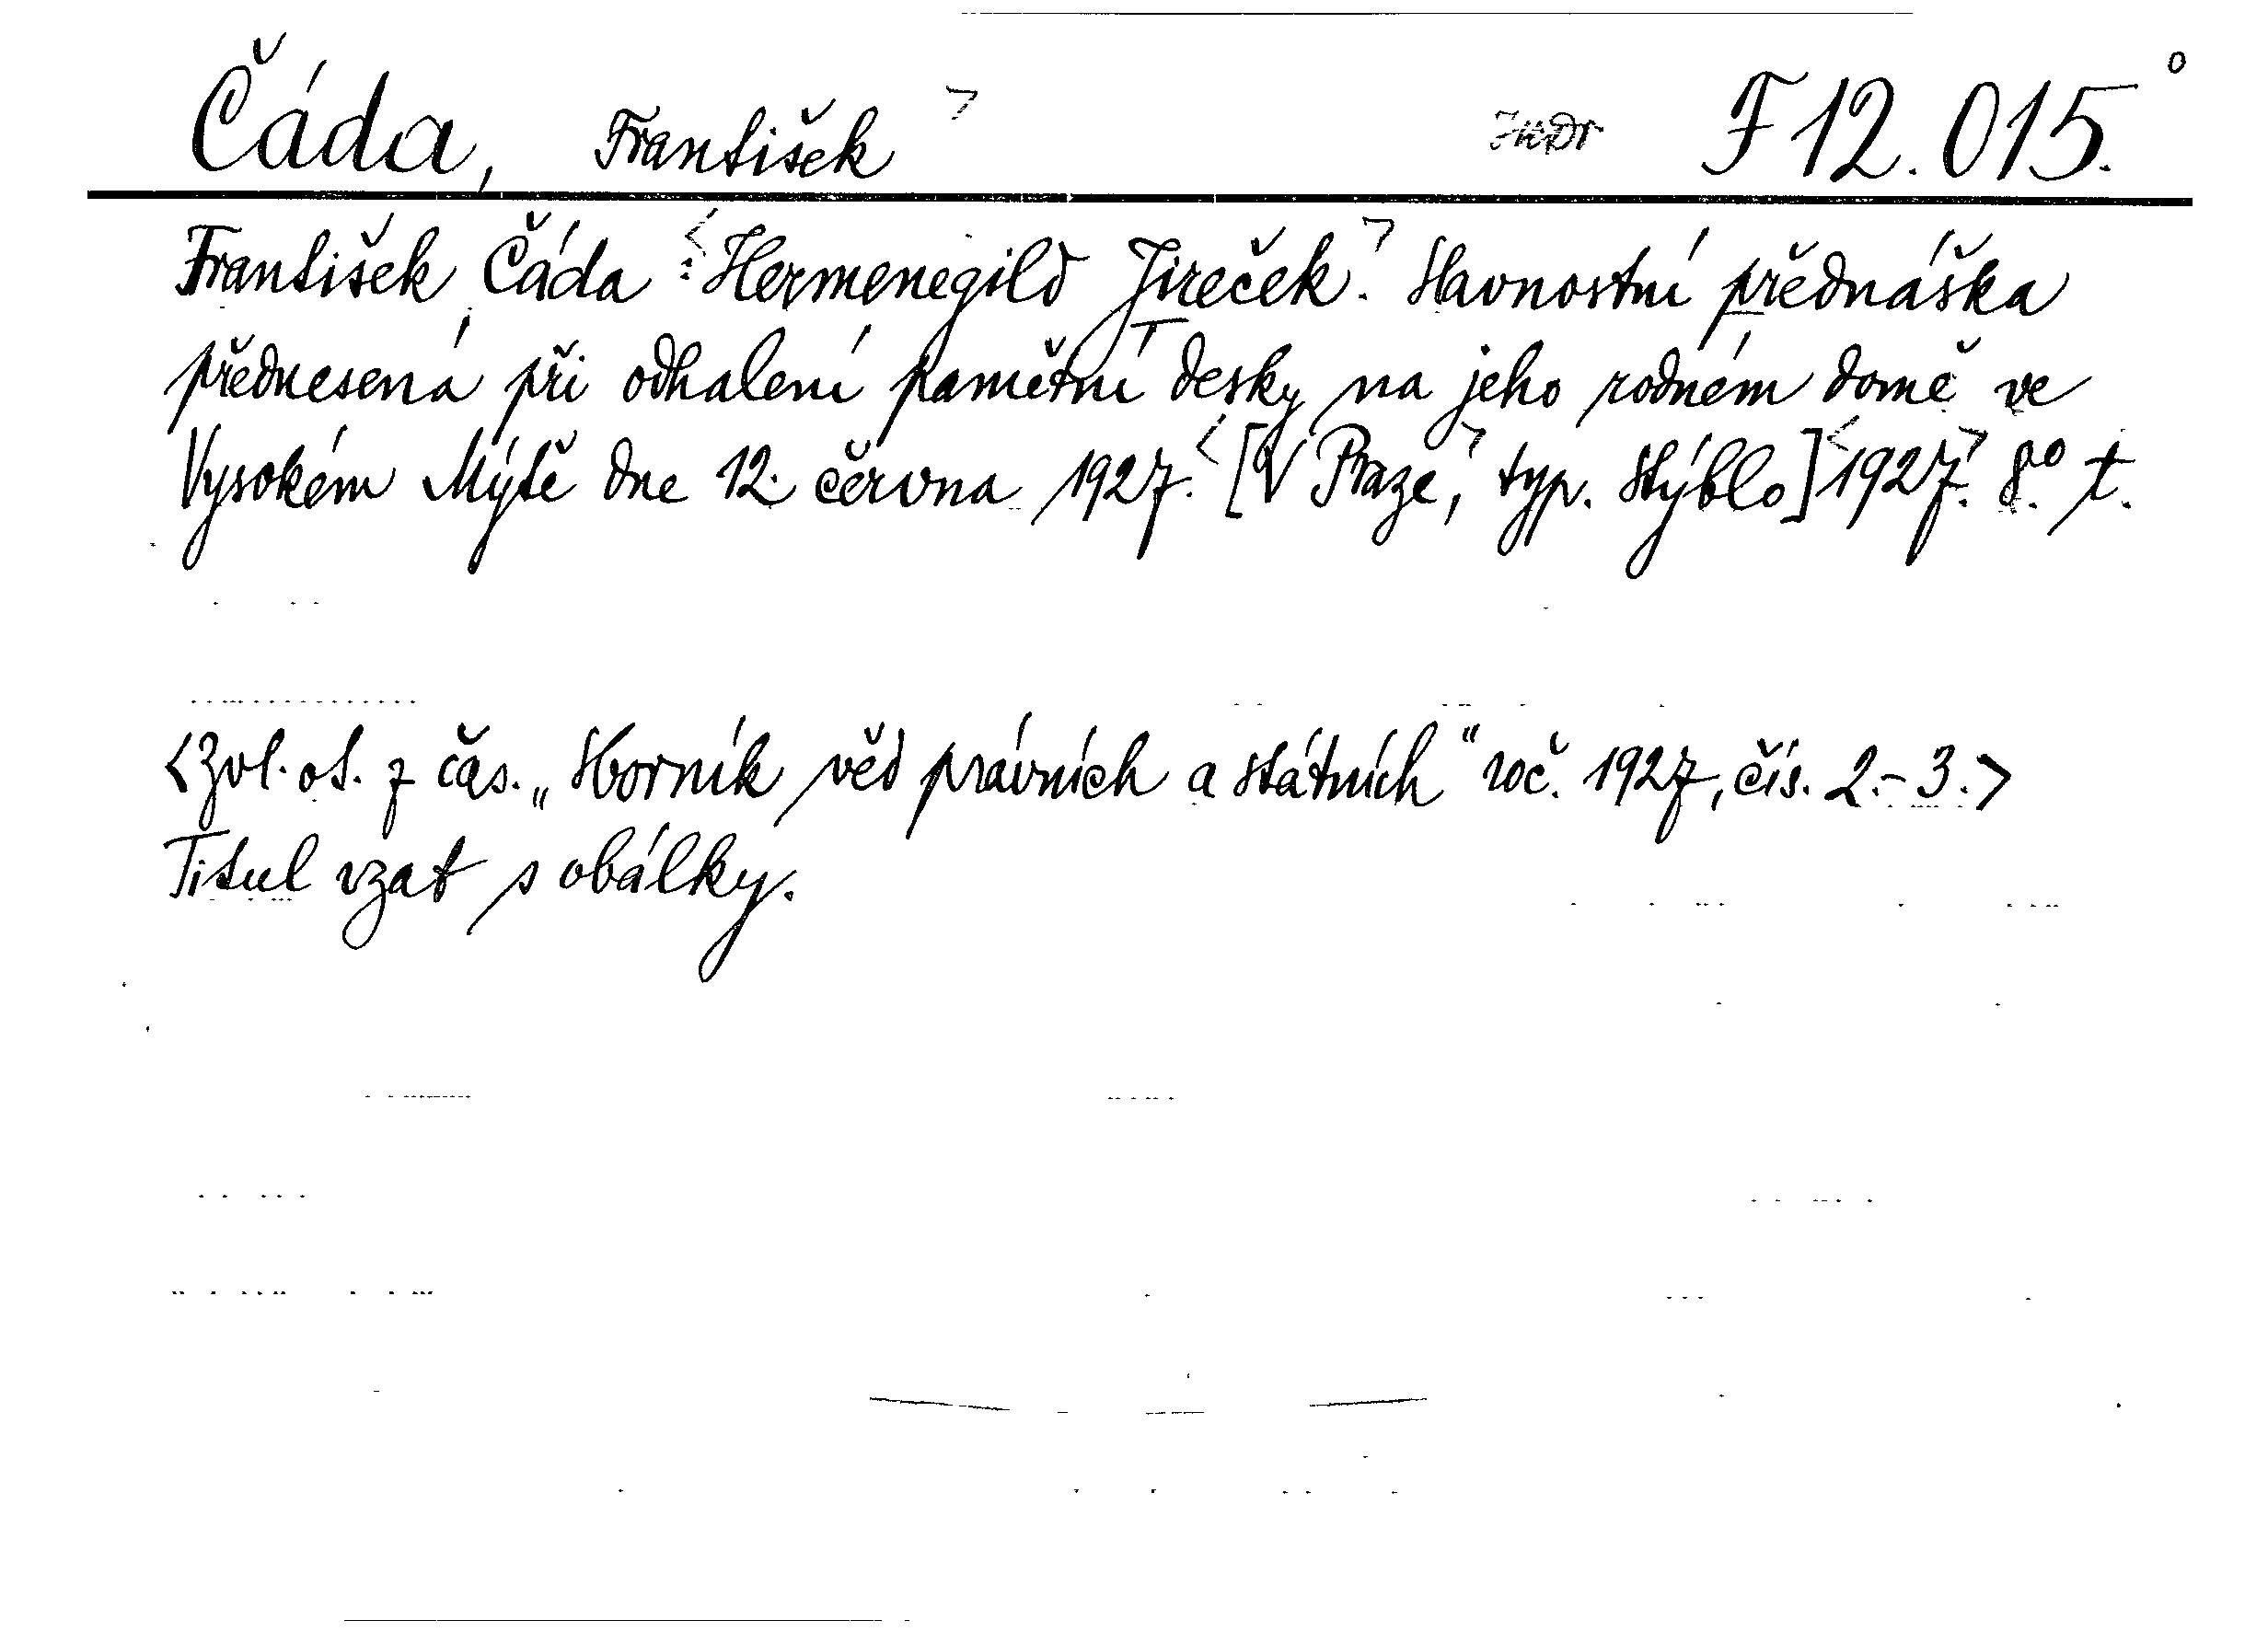 Čáda, František F 12.015.
František Čáda : Hermenegild Jireček. Slavnostní přednáška
přednesená při odhalení pamětní desky na jeho rodném domě ve
Vysokém Mýtě dne 12. června 1927. [V Praze, typ. Stýblo] 1927. 8.° t.
<Zvl. ot. z čas. „Sborník věd právních a státních“ roč. 1927, čís. 2.-3.>
Titul vzat s obálky.